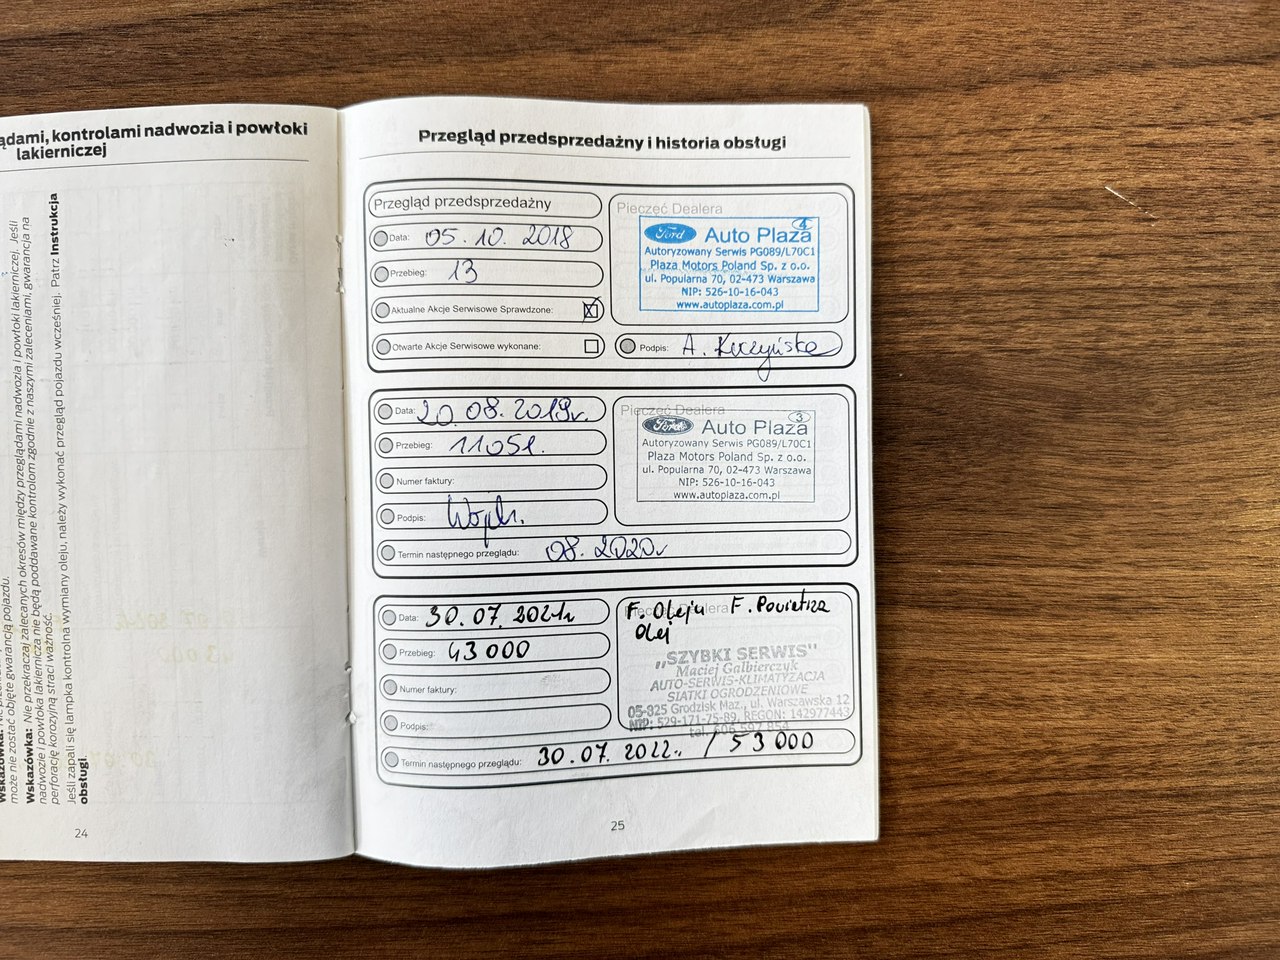 ądami, kontrolami nadwozia i powłoki
lakierniczej
może nie zostać objęte gwarancją pojazdu.
Wskazówka: Nie przekraczaj zalecanych okresów między przeglądami nadwozia i powłoki lakierniczej. Jeśli
nadwozie i powłoka lakiernicza nie będą poddawane kontrolom zgodnie z naszymi zaleceniami, gwarancja na
perforację korozyjną straci ważność.
Jeśli zapali się lampka kontrolna wymiany oleju, należy wykonać przegląd pojazdu wcześniej. Patrz Instrukcja
obsługi.
24
Przegląd przedsprzedażny i historia obsługi
Przegląd przedsprzedażny
Data: 05.10.2018
Przebieg: 13
Aktualne Akcje Serwisowe Sprawdzone:
Otwarte Akcje Serwisowe wykonane:
Pieczęć Dealera
4
Ford Auto Plaza
Autoryzowany Serwis PG089/L70C1
Plaza Motors Poland Sp. z o.o.
ul. Popularna 70, 02-473 Warszawa
NIP: 526-10-16-043
www.autoplaza.com.pl
Podpis: A.
Data: 20.08.2019r.
Przebieg: 11051.
Numer faktury:
Podpis:
Termin następnego przeglądu: 08.2020r
Pieczęć Dealera
3
Ford Auto Plaza
Autoryzowany Serwis PG089/L70C1
Plaza Motors Poland Sp. z o.o.
ul. Popularna 70, 02-473 Warszawa
NIP: 526-10-16-043
www.autoplaza.com.pl
Data: 30.07.2021r
Przebieg: 43 000
Numer faktury:
Podpis:
Termin następnego przeglądu: 30.07.2022r. / 53 000
Pieczęć Dealera
F. Oleju F. Powietrza
Olej
"SZYBKI SERWIS"
Maciej Galbierczyk
AUTO-SERWIS-KLIMATYZACJA
SIATKI OGRODZENIOWE
05-825 Grodzisk Maz., ul. Warszawska 12
NIP: 529-171-75-89, REGON: 142977443
25